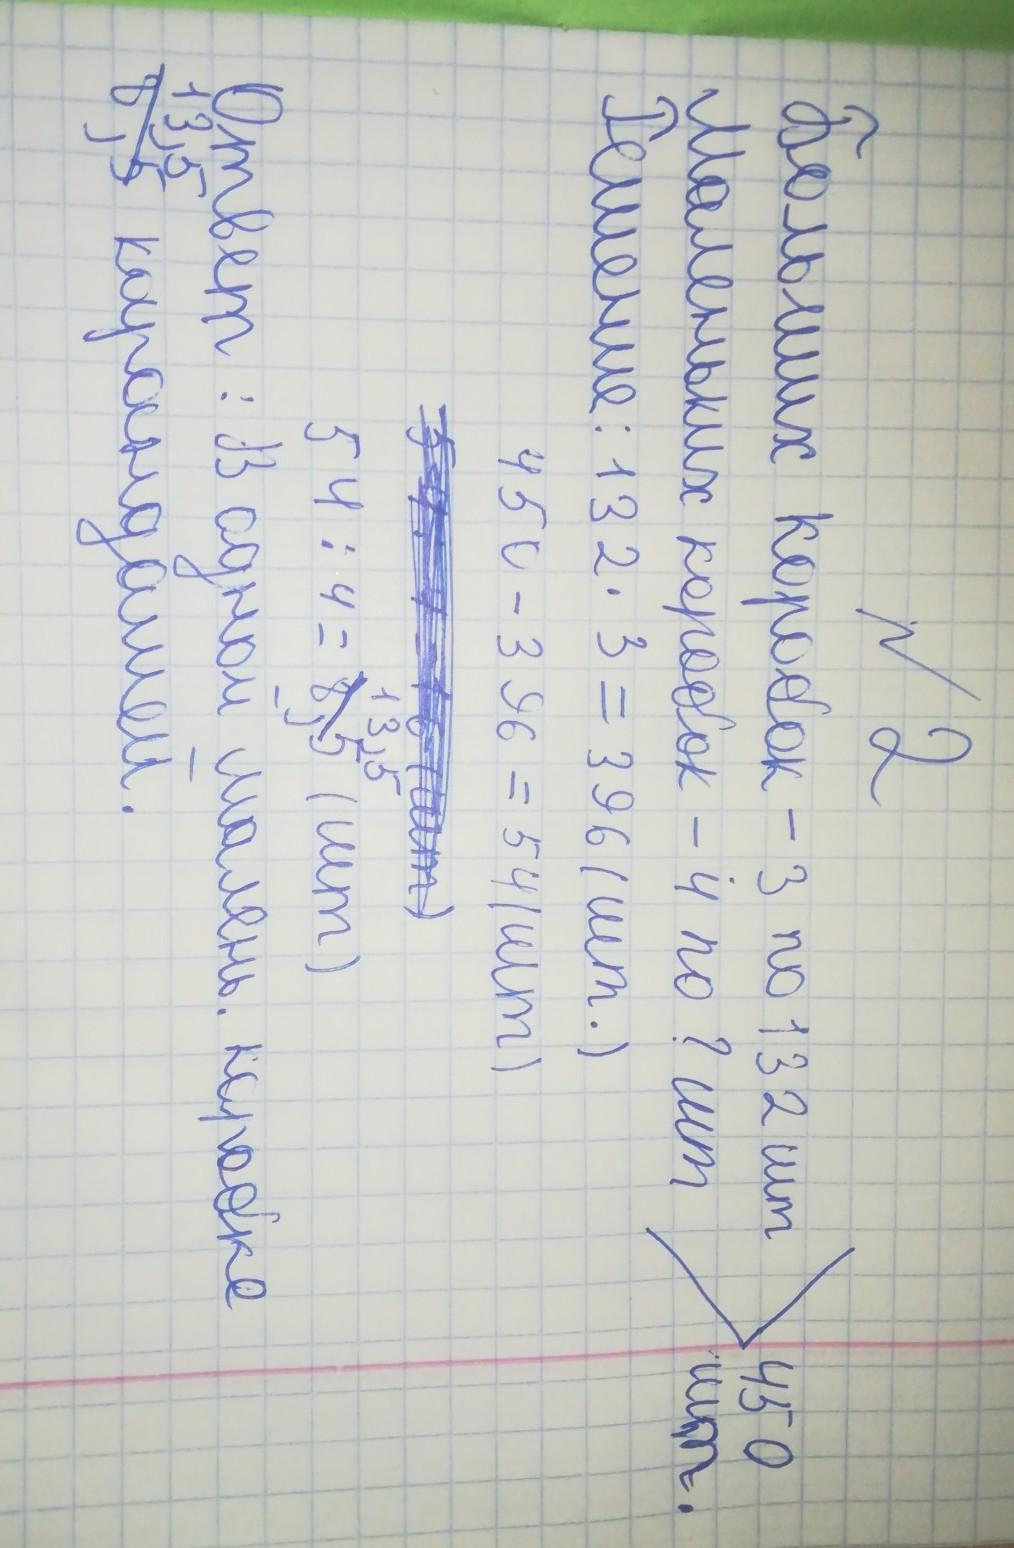 № 2
Больших коробок - 3 по 132 шт
Маленьких коробок - 4 по ? шт
450
шт.
Решение: 132 · 3 = 396 (шт.)
450 - 396 = 54 (шт)
13,5
54 : 4 = 8,5 (шт)
Ответ: В одной малень. коробке
13,5
8,5 карандашей.